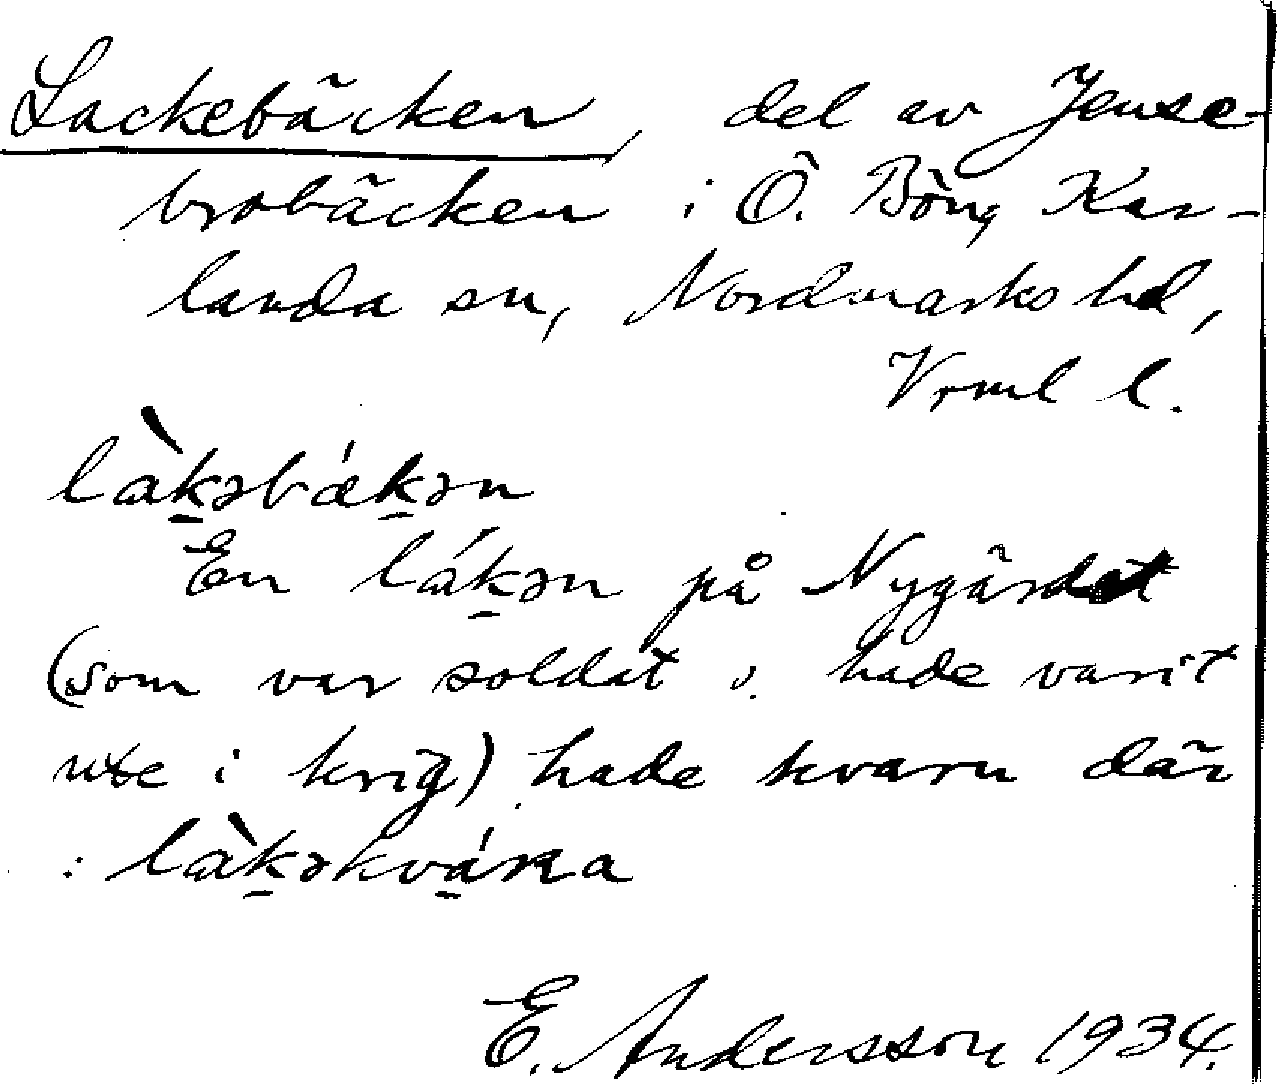 Lackebäcken, del av Jense-
brobäcken i Ö. Böng Kar-
landa sn, Nordmarks hd,
Vrml l.
làkəbǽkən
En lákən på Nygärdet
(som var soldat o. hade varit
ute i krig) hade kvarn där
: làkəkváɳa
E. Andersson 1934.